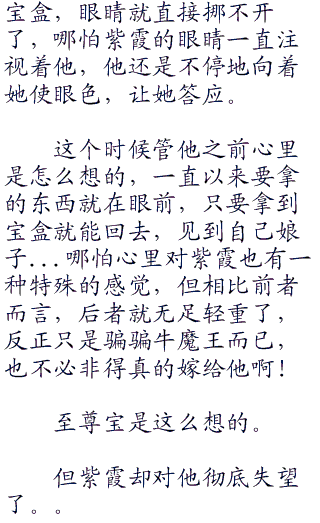 宝盒，眼睛就直接挪不开
了，哪怕紫霞的眼睛一直注
视着他，他还是不停地向着
她使眼色，让她答应。
这个时候管他之前心里
是怎么想的，一直以来要拿
的东西就在眼前，只要拿到
宝盒就能回去，见到自己娘
子...哪怕心里对紫霞也有一
种特殊的感觉，但相比前者
而言，后者就无足轻重了，
反正只是骗骗牛魔王而已，
也不必非得真的嫁给他啊！
至尊宝是这么想的。
但紫霞却对他彻底失望
了。。